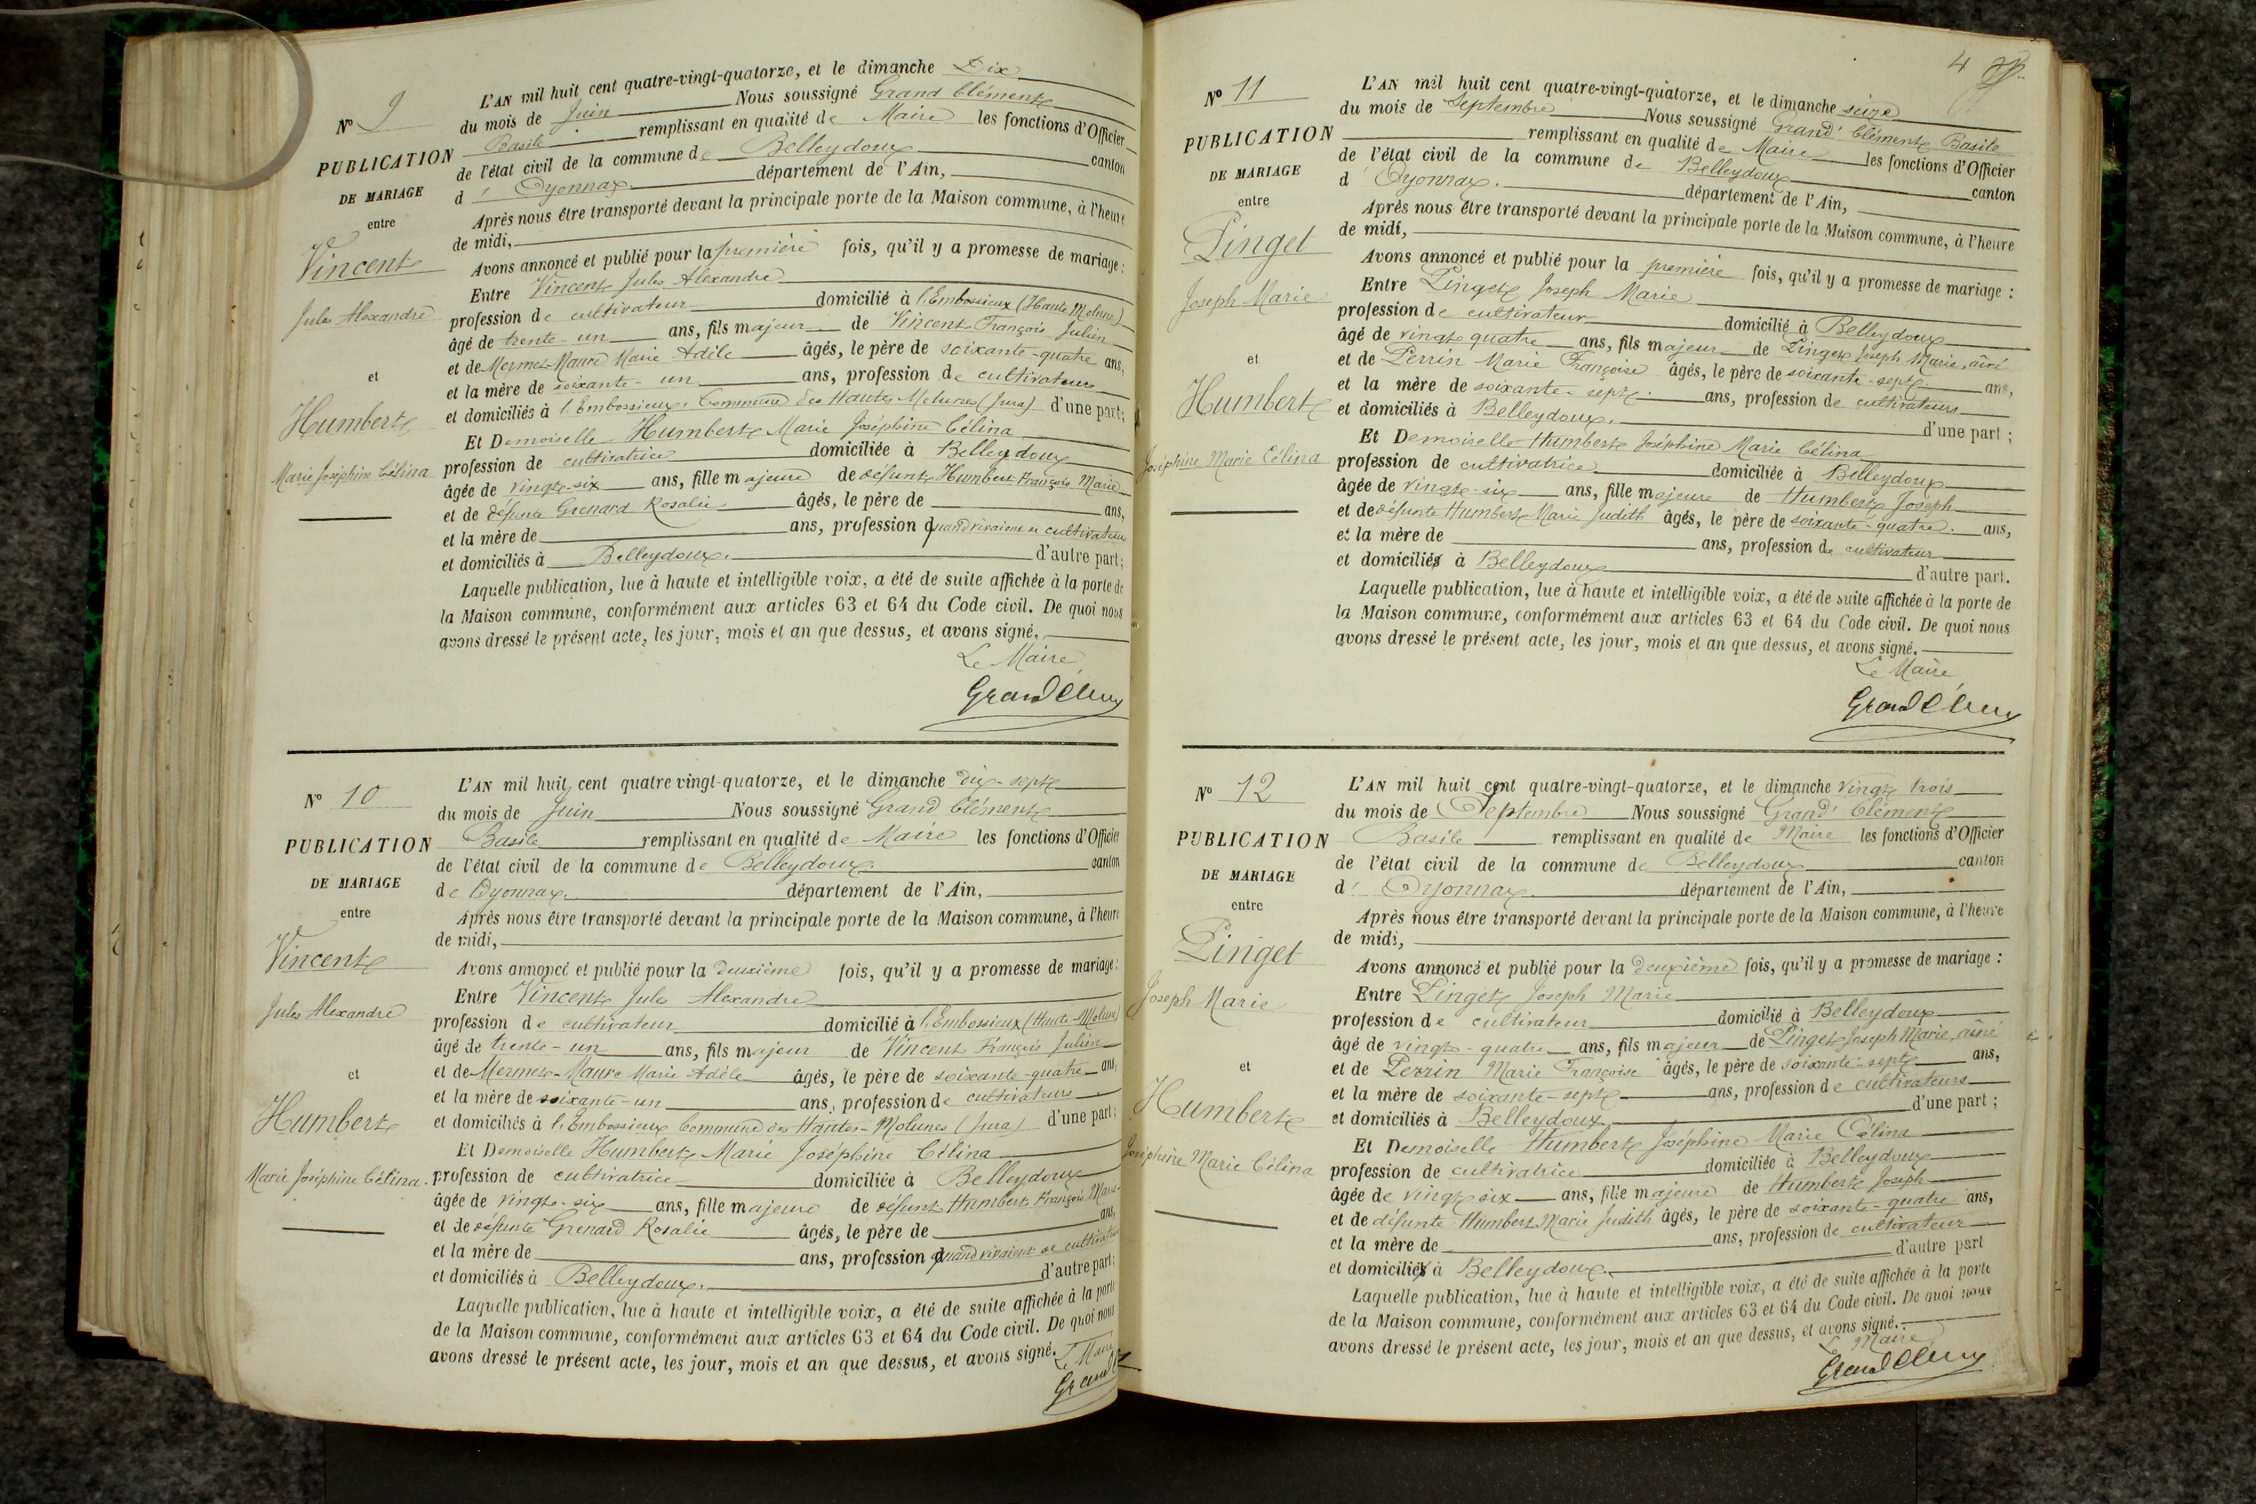 N° 9
PUBLICATION
DE MARIAGE
entre
Vincent
Jules Alexandre
et
Humbert
Marie Joséphine Célina
L'AN mil huit cent quatre-vingt-quatorze, et le dimanche Dix
du mois de Juin Nous soussigné Grand Clément
Basile remplissant en qualité de Maire les fonctions d'Officier
de l'état civil de la commune de Belleydoux canton
d' Oyonnax. département de l'Ain,
Après nous être transporté devant la principale porte de la Maison commune, à l'heure
de midi,
Avons annoncé et publié pour la première fois, qu'il y a promesse de mariage :
Entre Vincent Jules Alexandre
profession de cultivateur domicilié à l'Embossieux (Haute Molune)
âgé de trente-un ans, fils majeur de Vincent François Julien
et de Mermet-Maure Marie Adèle âgés, le père de soixante-quatre ans,
et la mère de soixante-un ans, profession de cultivateurs
et domiciliés à l'Embossieux, Commune des Hautes-Molunes (Jura) d'une part;
Et Demoiselle Humbert Marie Joséphine Célina
profession de cultivatrice domiciliée à Belleydoux
âgée de vingt-six ans, fille majeure de défunt Humbert François Marie
et de défunte Grenard Rosalie âgés, le père de ans,
et la mère de ans, profession quand vivaient de cultivateurs
et domiciliés à Belleydoux. d'autre part;
Laquelle publication, lue à haute et intelligible voix, a été de suite affichée à la porte de
la Maison commune, conformément aux articles 63 et 64 du Code civil. De quoi nous
avons dressé le présent acte, les jour, mois et an que dessus, et avons signé.
Le Maire
Grand Clém
N° 10
PUBLICATION
DE MARIAGE
entre
Vincent
Jules Alexandre
et
Humbert
Marie Joséphine Célina.
L'AN mil huit cent quatre vingt-quatorze, et le dimanche dix-sept
du mois de Juin Nous soussigné Grand Clément
Basile remplissant en qualité de Maire les fonctions d'Officier
de l'état civil de la commune de Belleydoux canton
de Oyonnax. département de l'Ain,
Après nous être transporté devant la principale porte de la Maison commune, à l'heure
de midi,
Avons annoncé et publié pour la deuxième fois, qu'il y a promesse de mariage :
Entre Vincent Jules Alexandre
profession de cultivateur domicilié à l'Embossieux (Haute-Molune)
âgé de trente-un ans, fils majeur de Vincent François Julien
et de Mermet-Maure Marie Adèle âgés, le père de soixante-quatre ans,
et la mère de soixante-un ans, profession de cultivateurs
et domiciliés à l'Embossieux Commune des Hautes-Molunes (Jura) d'une part;
Et Demoiselle Humbert Marie Joséphine Célina
profession de cultivatrice domiciliée à Belleydoux
âgée de vingt-six ans, fille majeure de défunt Humbert François Marie
et de défunte Grenard Rosalie âgés, le père de ans,
et la mère de ans, profession quand vivaient de cultivateurs
et domiciliés à Belleydoux. d'autre part;
Laquelle publication, lue à haute et intelligible voix, a été de suite affichée à la porte
de la Maison commune, conformément aux articles 63 et 64 du Code civil. De quoi nous
avons dressé le présent acte, les jour, mois et an que dessus, et avons signé.
Le Maire
Grand
4
N° 11
PUBLICATION
DE MARIAGE
entre
Pinget
Joseph Marie
et
Humbert
Joséphine Marie Célina
L'AN mil huit cent quatre-vingt-quatorze, et le dimanche seize
du mois de Septembre Nous soussigné Grand Clément Basile
remplissant en qualité de Maire les fonctions d'Officier
de l'état civil de la commune de Belleydoux canton
d' Oyonnax. département de l'Ain,
Après nous être transporté devant la principale porte de la Maison commune, à l'heure
de midi,
Avons annoncé et publié pour la première fois, qu'il y a promesse de mariage :
Entre Pinget Joseph Marie
profession de cultivateur domicilié à Belleydoux
âgé de vingt quatre ans, fils majeur de Pinget Joseph Marie, aîné
et de Perrin Marie Françoise âgés, le père de soixante-sept ans,
et la mère de soixante-sept. ans, profession de cultivateurs
et domiciliés à Belleydoux. d'une part;
Et Demoiselle Humbert Joséphine Marie Célina
profession de cultivatrice domiciliée à Belleydoux
âgée de vingt-six ans, fille majeure de Humbert Joseph
et de défunte Humbert Marie Judith âgés, le père de soixante-quatre. ans,
et la mère de ans, profession de cultivateur
et domiciliés à Belleydoux d'autre part.
Laquelle publication, lue à haute et intelligible voix, a été de suite affichée à la porte de
la Maison commune, conformément aux articles 63 et 64 du Code civil. De quoi nous
avons dressé le présent acte, les jour, mois et an que dessus, et avons signé.
Le Maire
Grand Clém
N° 12
PUBLICATION
DE MARIAGE
entre
Pinget
Joseph Marie
et
Humbert
Joséphine Marie Célina
L'AN mil huit cent quatre-vingt-quatorze, et le dimanche vingt trois
du mois de Septembre Nous soussigné Grand Clément
Basile remplissant en qualité de Maire les fonctions d'Officier
de l'état civil de la commune de Belleydoux canton
d' Oyonnax département de l'Ain,
Après nous être transporté devant la principale porte de la Maison commune, à l'heure
de midi,
Avons annoncé et publié pour la deuxième fois, qu'il y a promesse de mariage :
Entre Pinget Joseph Marie
profession de cultivateur domicilié à Belleydoux
âgé de vingt-quatre ans, fils majeur de Pinget Joseph Marie, aîné
et de Perrin Marie Françoise âgés, le père de soixante-sept ans,
et la mère de soixante-sept ans, profession de cultivateurs
et domiciliés à Belleydoux d'une part;
Et Demoiselle Humbert Joséphine Marie Célina
profession de cultivatrice domiciliée à Belleydoux
âgée de vingt six ans, fille majeure de Humbert Joseph
et de défunte Humbert Marie Judith âgés, le père de soixante-quatre ans,
et la mère de ans, profession de cultivateur
et domiciliés à Belleydoux. d'autre part
Laquelle publication, lue à haute et intelligible voix, a été de suite affichée à la porte
de la Maison commune, conformément aux articles 63 et 64 du Code civil. De quoi nous
avons dressé le présent acte, les jour, mois et an que dessus, et avons signé.
Le Maire
Grand Clém